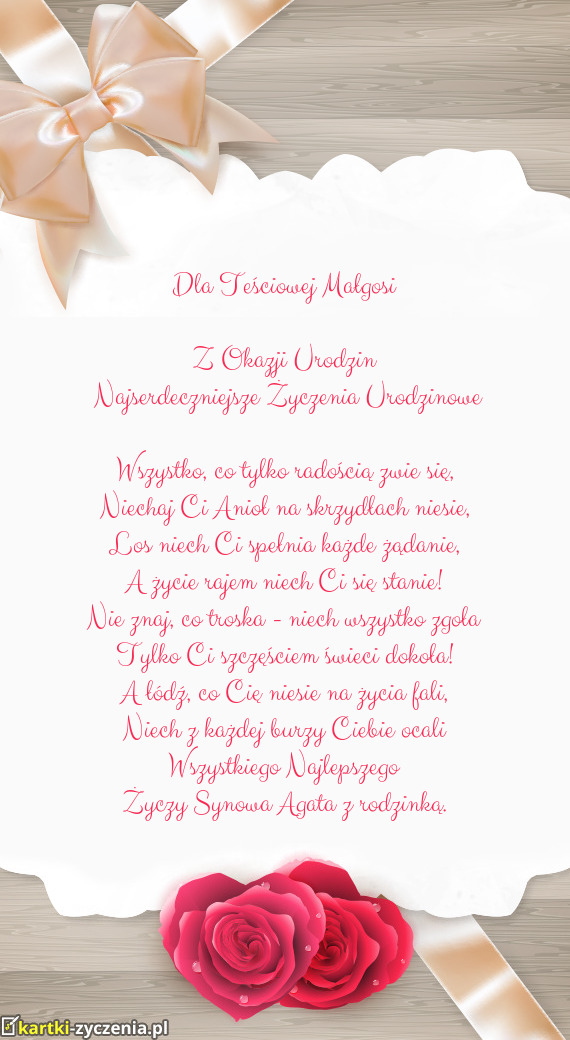 Dla Teściowej Małgosi
Z Okazji Urodzin
Najserdeczniejsze Życzenia Urodzinowe
Wszystko, co tylko radością zwie się,
Niechaj Ci Anioł na skrzydłach niesie,
Los niech Ci spełnia każde żądanie,
A życie rajem niech Ci się stanie!
Nie znaj, co troska - niech wszystko zgoła
Tylko Ci szczęściem świeci dokoła!
A łódź, co Cię niesie na życia fali,
Niech z każdej burzy Ciebie ocali
Wszystkiego Najlepszego
Życzy Synowa Agata z rodzinką.
kartki-zyczenia.pl